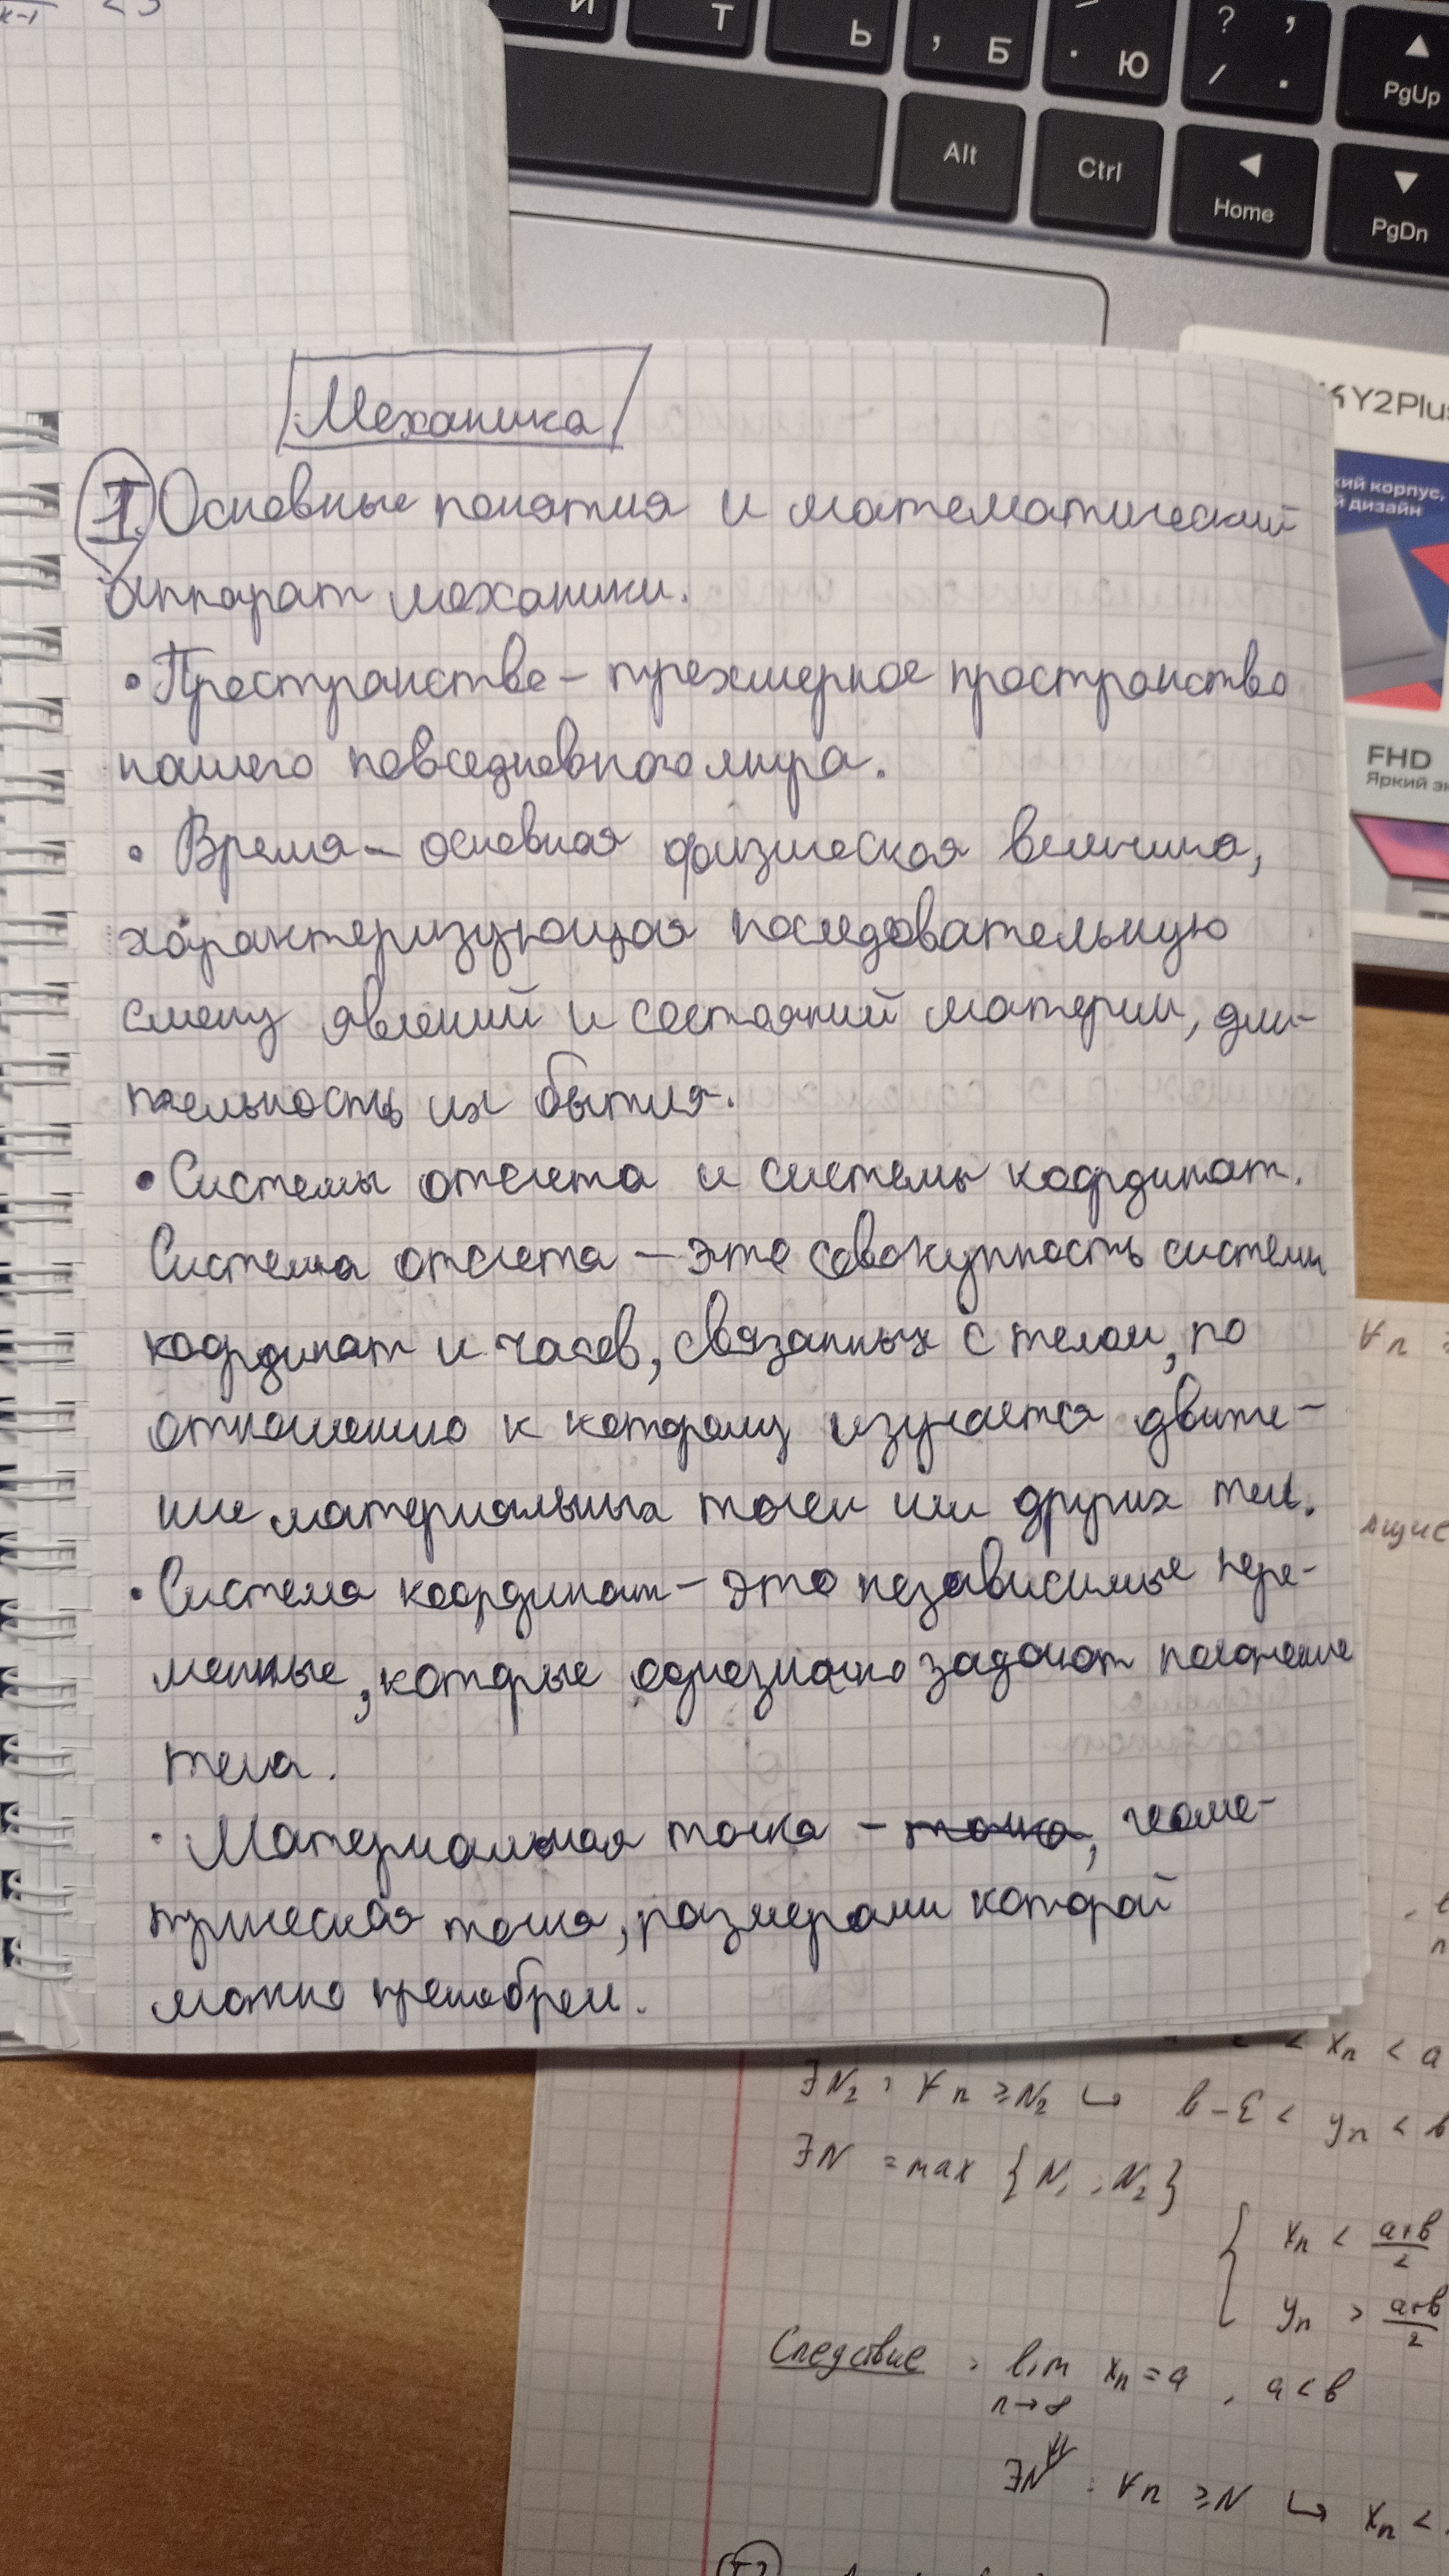 k-1
И
Т
Ь
, Б
. Ю
? ,
/ .
PgUp
Alt
Ctrl
Home
PgDn
Механика
Y2Plus
I. Основные понятия и математический
кий корпус,
й дизайн
аппарат механики.
• Пространство – трехмерное пространство
нашего повседневного мира.
FHD
Яркий эк
• Время – основная физическая величина,
характеризующая последовательную
смену явлений и состояний материи, дли-
тельность их бытия.
• Системы отсчета и системы координат.
Система отсчета – это совокупность системы
координат и часов, связанных с телом, по
∀n
отношению к которому изучается движе-
ние материальных точек или других тел.
ющие
• Система координат – это независимые пере-
менные, которые однозначно задают положение
тела.
• Материальная точка – точка, геоме-
трическая точка, размерами которой
можно пренебречь.
< xₙ < a
∃N₂ : ∀n ≥ N₂ ↪ b – ε < yₙ < b
∃N = max {N₁ ; N₂}
{ xₙ < a+b/2
yₙ > a+b/2
Следствие : lim xₙ = a , a < b
n→∞
⇓
∃N : ∀n ≥ N ↪ xₙ <